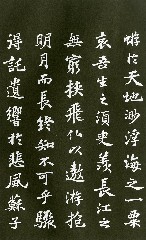 蜉蝣於天地渺浮海之一粟
哀吾生之須臾羨長江之
無窮挾飛仙以遨游抱
明月而長終知不可乎驟
得託遺響於悲風蘇子